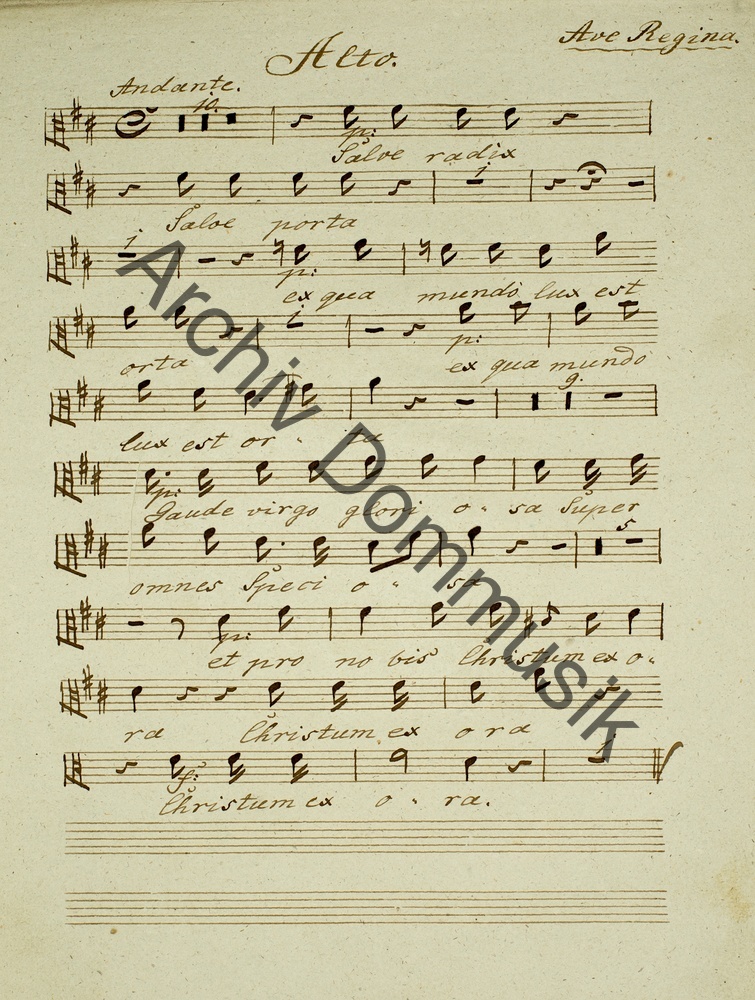 Ave Regina.
Alto.
Andante.
10.
p:
Salve radix
1
Salve porta
1
p:
ex qua mundo lux est
1
orta p: ex qua mundo
9.
lux est or - ta
p:
Gaude virgo glori o - sa Super
5
omnes Speci o - sa
p:
et pro no bis Christum ex o -
ra Christum ex o ra
1
f:
Christum ex o - ra.
Archiv Dommusik